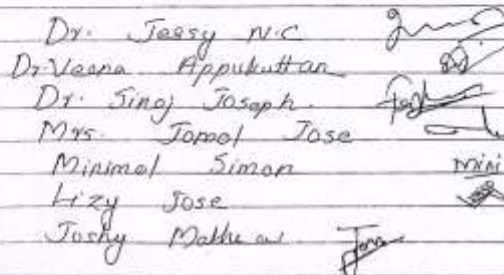 Dr. Jessy N.C
Dr. Veena Appukuttan
Dr. Sinoj Joseph.
Mrs. Jomol Jose
Minimol Simon mini
Lizy Jose
Joshy Mathew